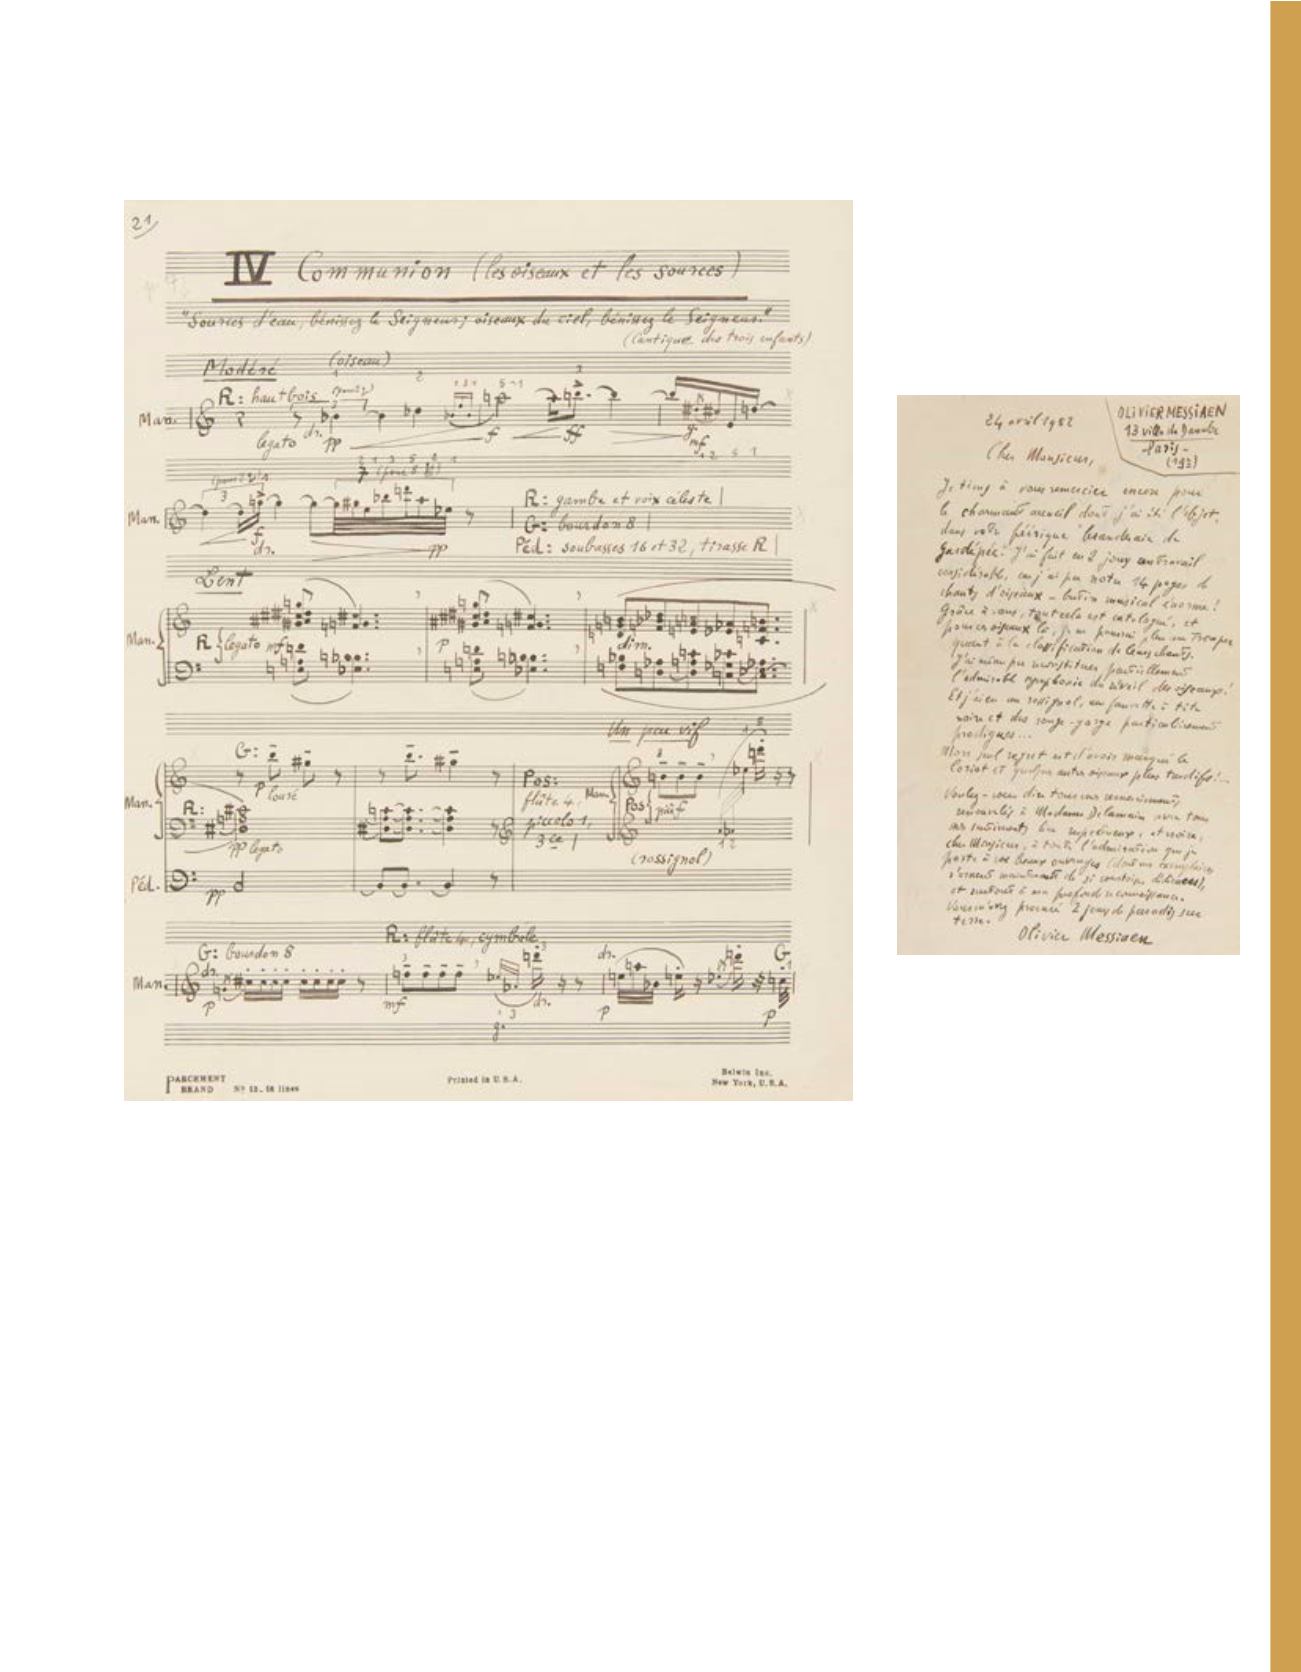 21
IV Communion (les oiseaux et les sources)
"Sources d'eau, bénissez le Seigneur; oiseaux du ciel, bénissez le Seigneur."
(Cantique des trois enfants)
Modéré (oiseau)
R: hautbois
Man.
legato dr. pp f ff g. mf
3
Man.
f dr. pp
R: gambe et voix céleste
G: bourdon 8
Péd: soubasses 16 et 32, tirasse R
Lent
Man. R legato mf p dim.
Un peu vif
G:
p louré
Man. R:
pp legato
Pos:
flûte 4,
piccolo 1,
3ce
Man.
Pos
(rossignol)
Péd. pp
R: flûte 4, cymbale
G: bourdon 8
dr. dr. G
Man.
p mf dr. p p
g.
PARCHMENT
BRAND
Printed in U.S.A.
Belwin Inc.
New York, U.S.A.
24 avril 1952
OLIVIER MESSIAEN
13 villa du Danube
Paris
Cher Monsieur,
Je tiens à vous remercier encore pour
le charmant accueil dont j'ai été l'objet,
dans votre féerique branderaie de
Gardépée! J'ai fait en 2 jours un travail
considérable, car j'ai pu noter 14 pages de
chants d'oiseaux - butin musical énorme!
Grâce à vous, tout cela est catalogué, et
pour ces oiseaux là, je ne pourrai plus me tromper
quant à la classification de leurs chants.
J'ai même pu reconstituer partiellement
l'admirable symphonie du réveil des oiseaux!
Et j'ai eu un rossignol, une fauvette à tête
noire et des rouge-gorge particulièrement
prodigues...
Mon seul regret est d'avoir manqué le
loriot et quelques autres oiseaux plus tardifs!...
Voulez-vous dire tous mes remerciements
renouvelés à Madame Delamain avec tous
mes sentiments bien respectueux, et croire,
cher Monsieur, à toute l'admiration que je
porte à vos beaux ouvrages
et surtout à ma profonde reconnaissance.
Vous m'avez procuré 2 jours de paradis sur
terre.
Olivier Messiaen